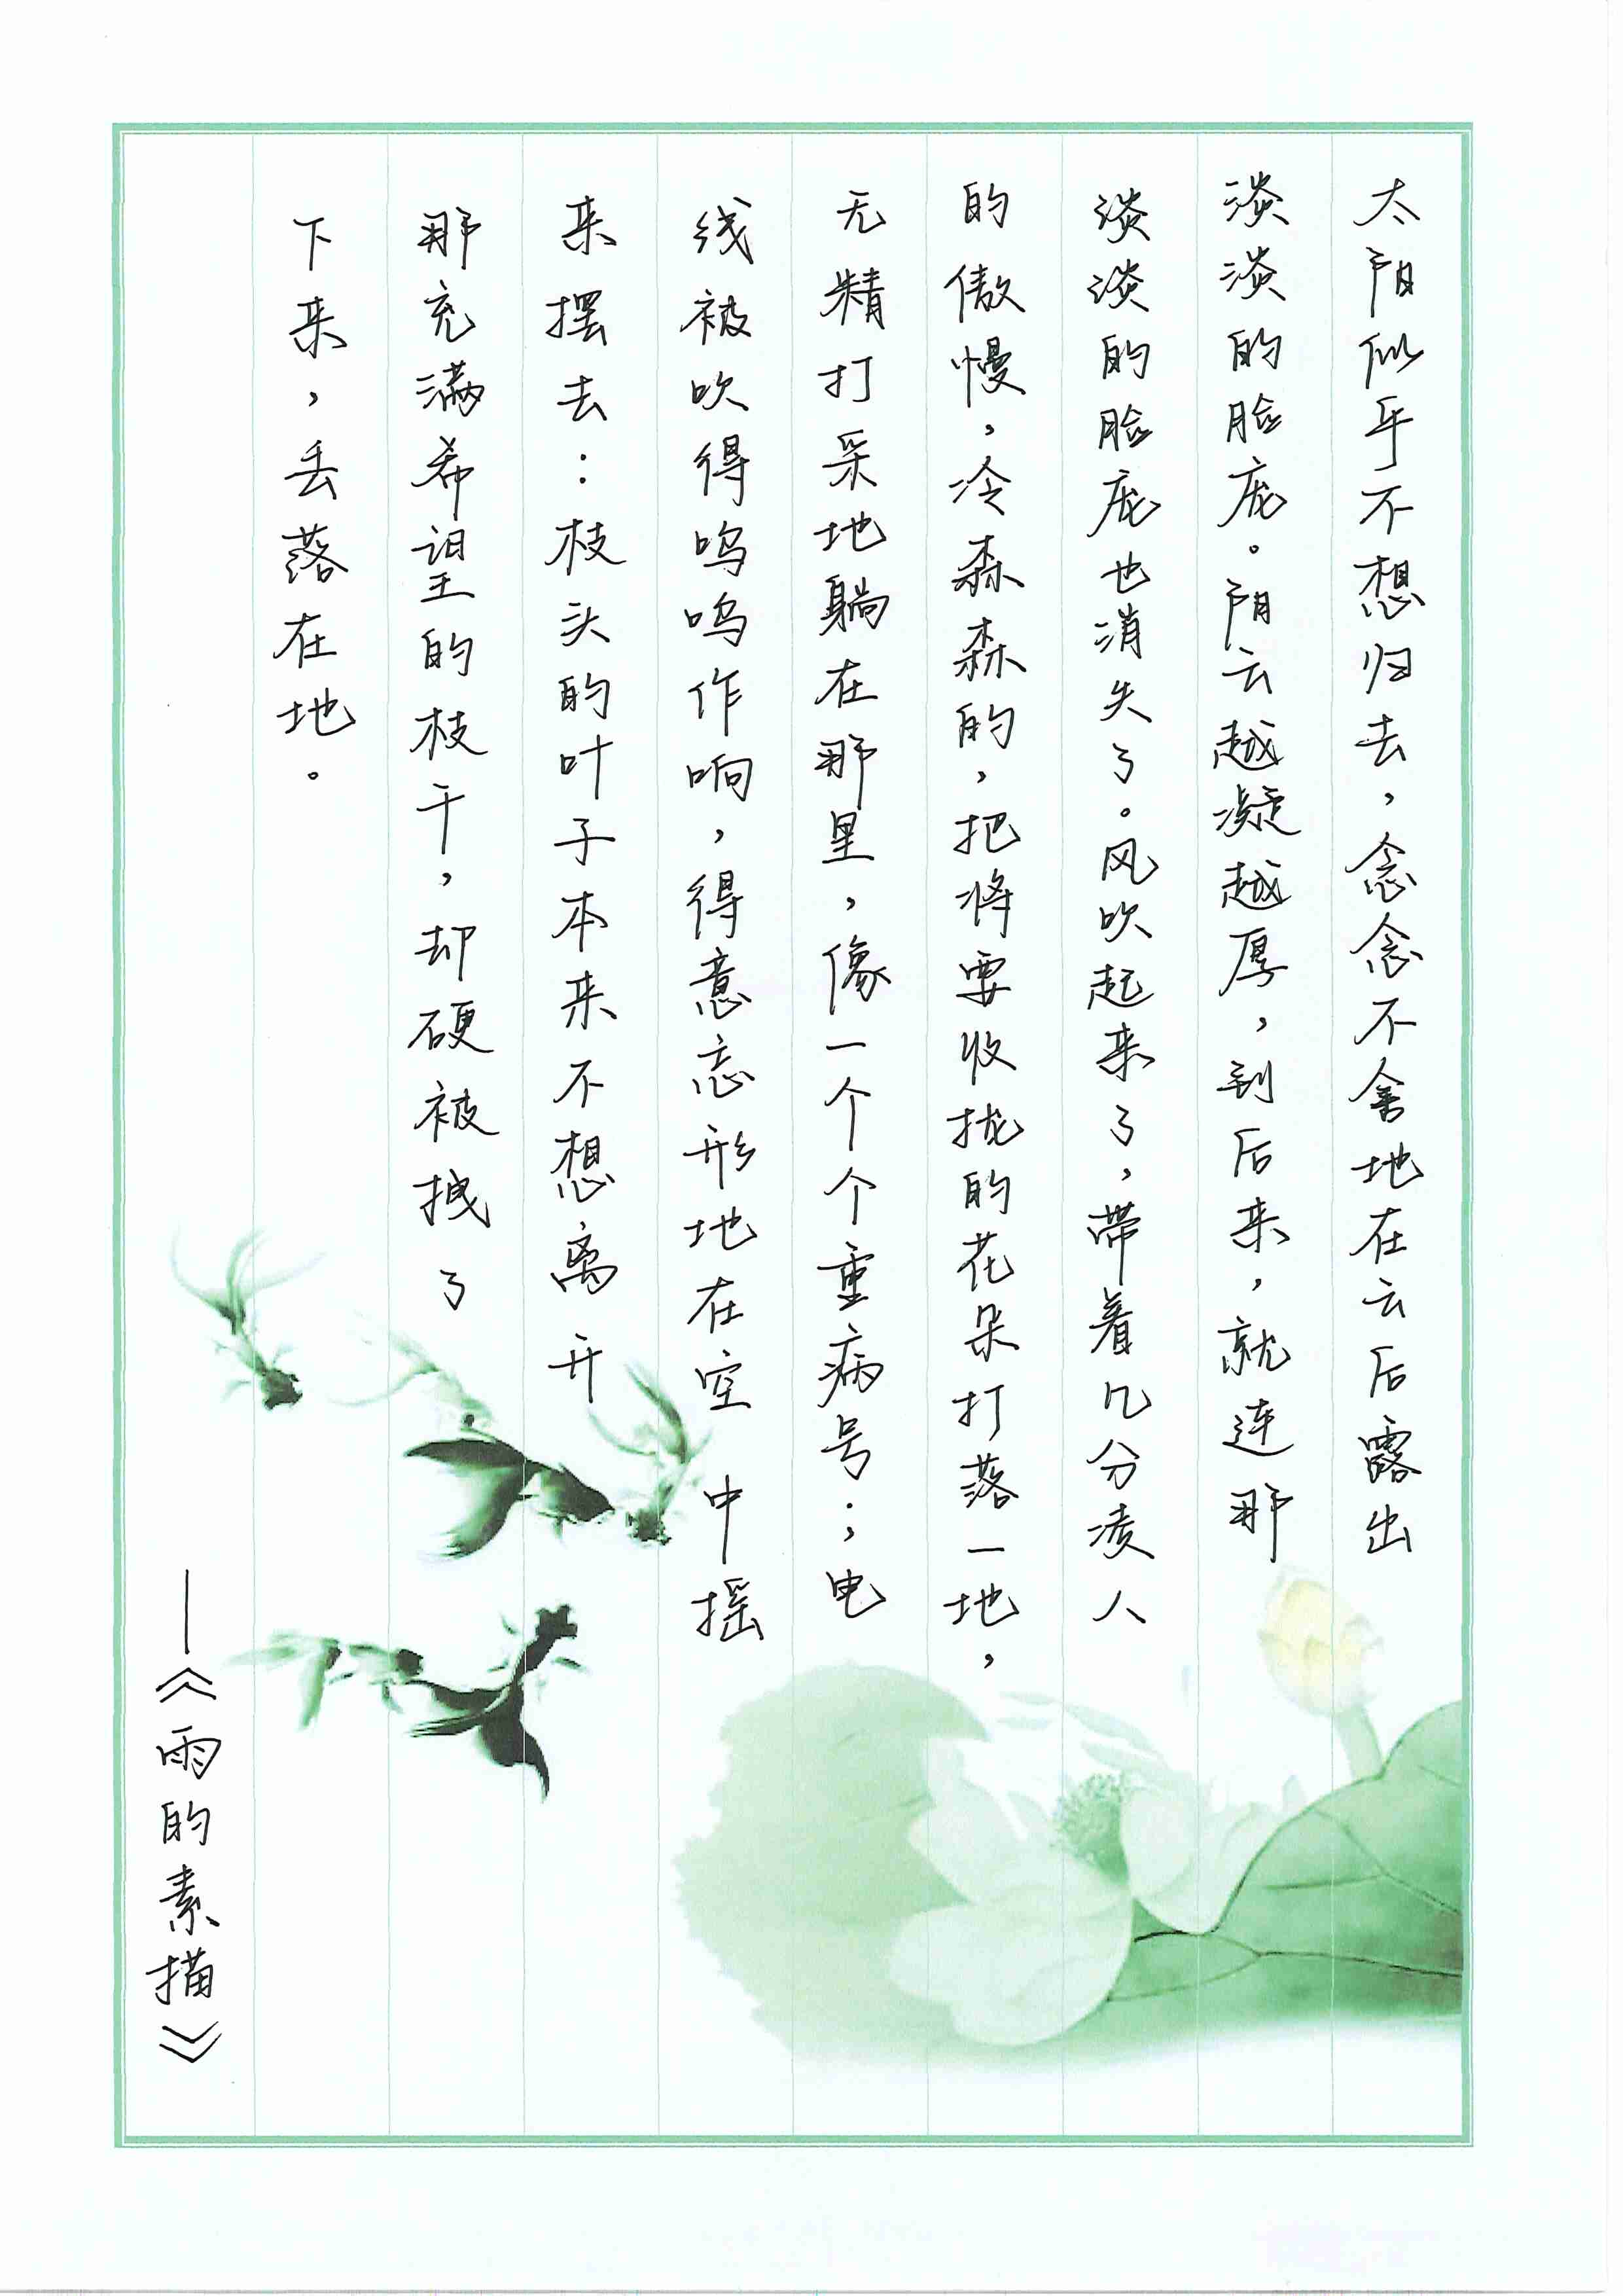 太阳似乎不想归去，念念不舍地在云后露出
淡淡的脸庞。阴云越凝越厚，到后来，就连那
淡淡的脸庞也消失了。风吹起来了，带着几分凌人
的傲慢，冷森森的，把将要收拢的花朵打落一地，
无精打采地躺在那里，像一个个重病号；电
线被吹得呜呜作响，得意忘形地在空中摇
来摆去：枝头的叶子本来不想离开
那充满希望的枝干，却硬被拽了
下来，丢落在地。
——《雨的素描》